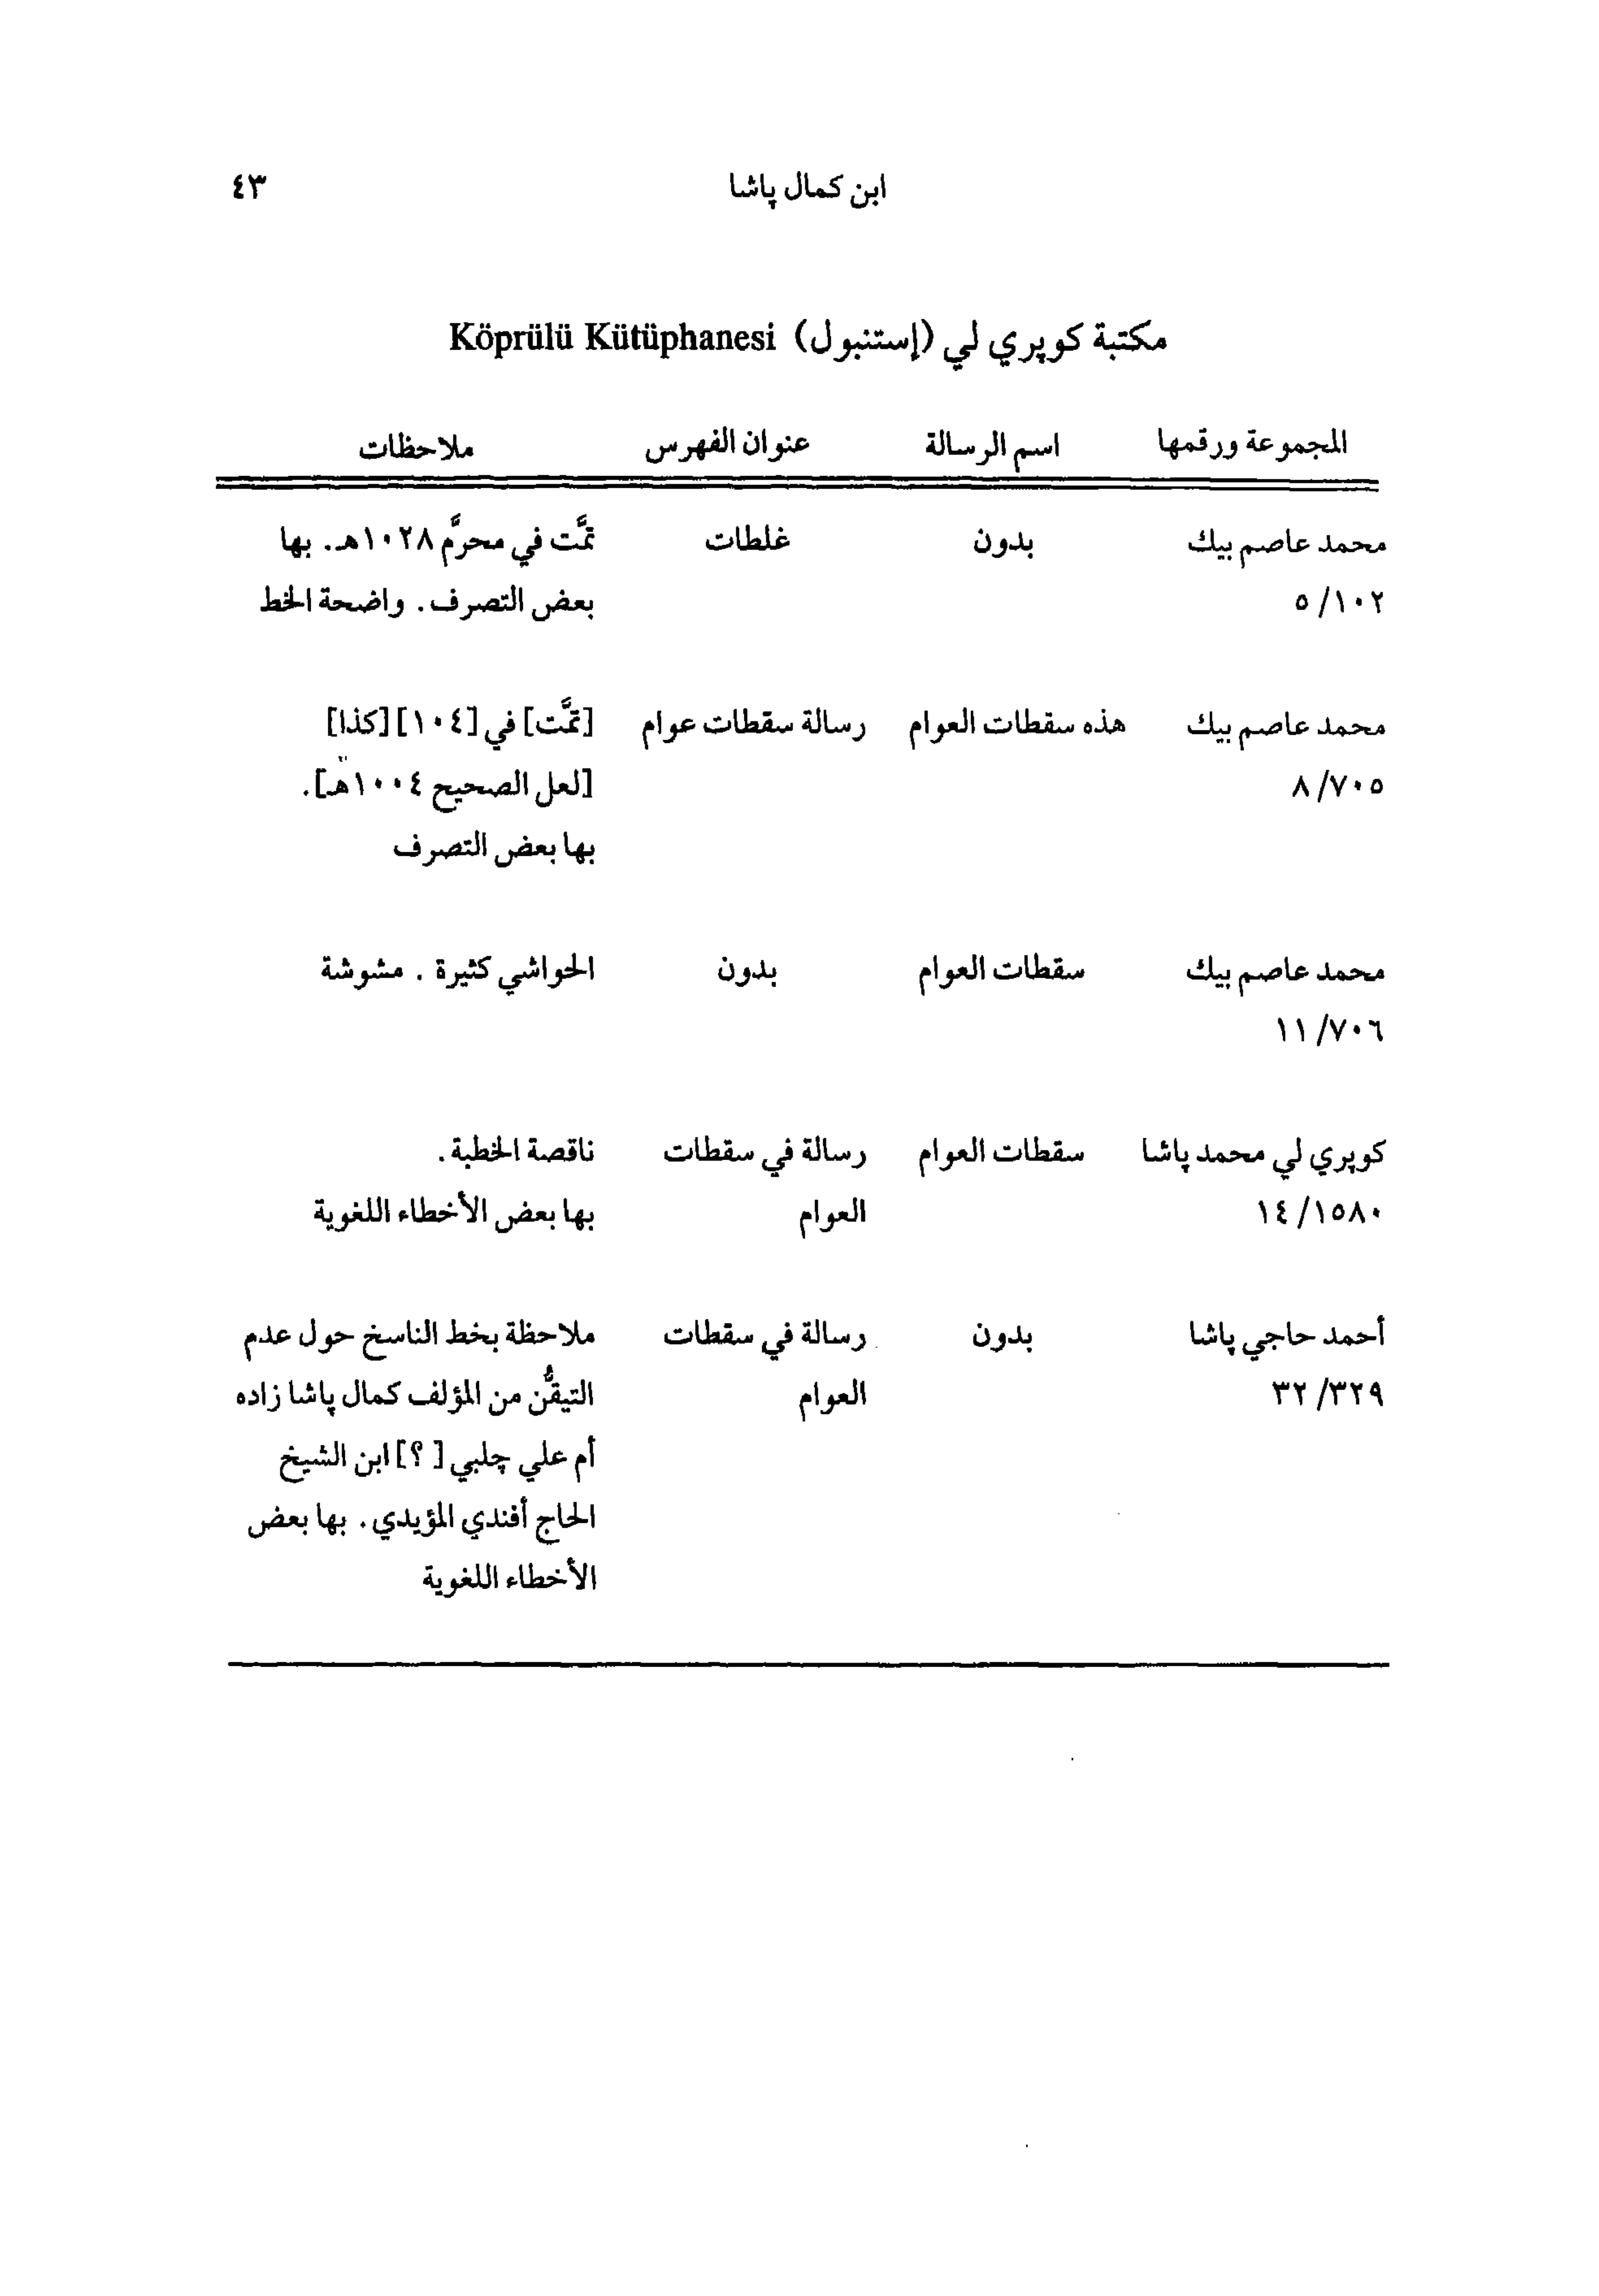 ابن كمال پاشا ٤٣
مكتبة كوپري لي (إستنبول) Köprülü Kütüphanesi
المجموعة ورقمها اسم الرسالة عنوان الفهرس ملاحظات
محمد عاصم بيك بدون غلطات تمَّت في محرَّم ١٠٢٨هـ. بها
٥/١٠٢ بعض التصرف. واضحة الخط
محمد عاصم بيك هذه سقطات العوام رسالة سقطات عوام [تمَّت] في [١٠٤] [كذا]
٨/٧٠٥ [لعل الصحيح ١٠٠٤هـ].
بها بعض التصرف
محمد عاصم بيك سقطات العوام بدون الحواشي كثيرة. مشوشة
١١/٧٠٦
كوپري لي محمد پاشا سقطات العوام رسالة في سقطات ناقصة الخطبة.
١٤/١٥٨٠ العوام بها بعض الأخطاء اللغوية
أحمد حاجي پاشا بدون رسالة في سقطات ملاحظة بخط الناسخ حول عدم
٣٢/٣٢٩ العوام التيقُّن من المؤلف كمال پاشا زاده
أم علي چلبي [؟] ابن الشيخ
الحاج أفندي المؤيدي. بها بعض
الأخطاء اللغوية